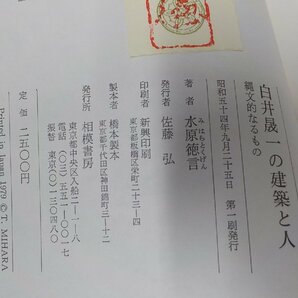 白井晟一の建築と人
縄文的なるもの
昭和五十四年九月二十五日 第一刷発行
著者 水原徳言
みはらとくげん
発行者 佐藤 弘
印刷者 新興印刷
東京都板橋区栄町二十三―四
製本者 橋本製本
東京都千代田区神田錦町三―十二
発行所 相模書房
東京都中央区入船二―一―八
電話(〇三)五五一―〇〇一七
振替(東京)〇―一三〇四八〇
定価 二五〇〇円
Printed in Japan 1979 © T. MIHARA